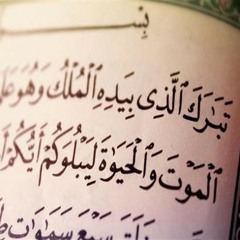 بِسْ
تَبَٰرَكَ ٱلَّذِى بِيَدِهِ ٱلْمُلْكُ وَهُوَ عَلَىٰ
ٱلْمَوْتَ وَٱلْحَيَوٰةَ لِيَبْلُوَكُمْ أَيُّكُمْ أَ
خَلَقَ سَبْعَ سَمَٰوَٰتٍ طِ